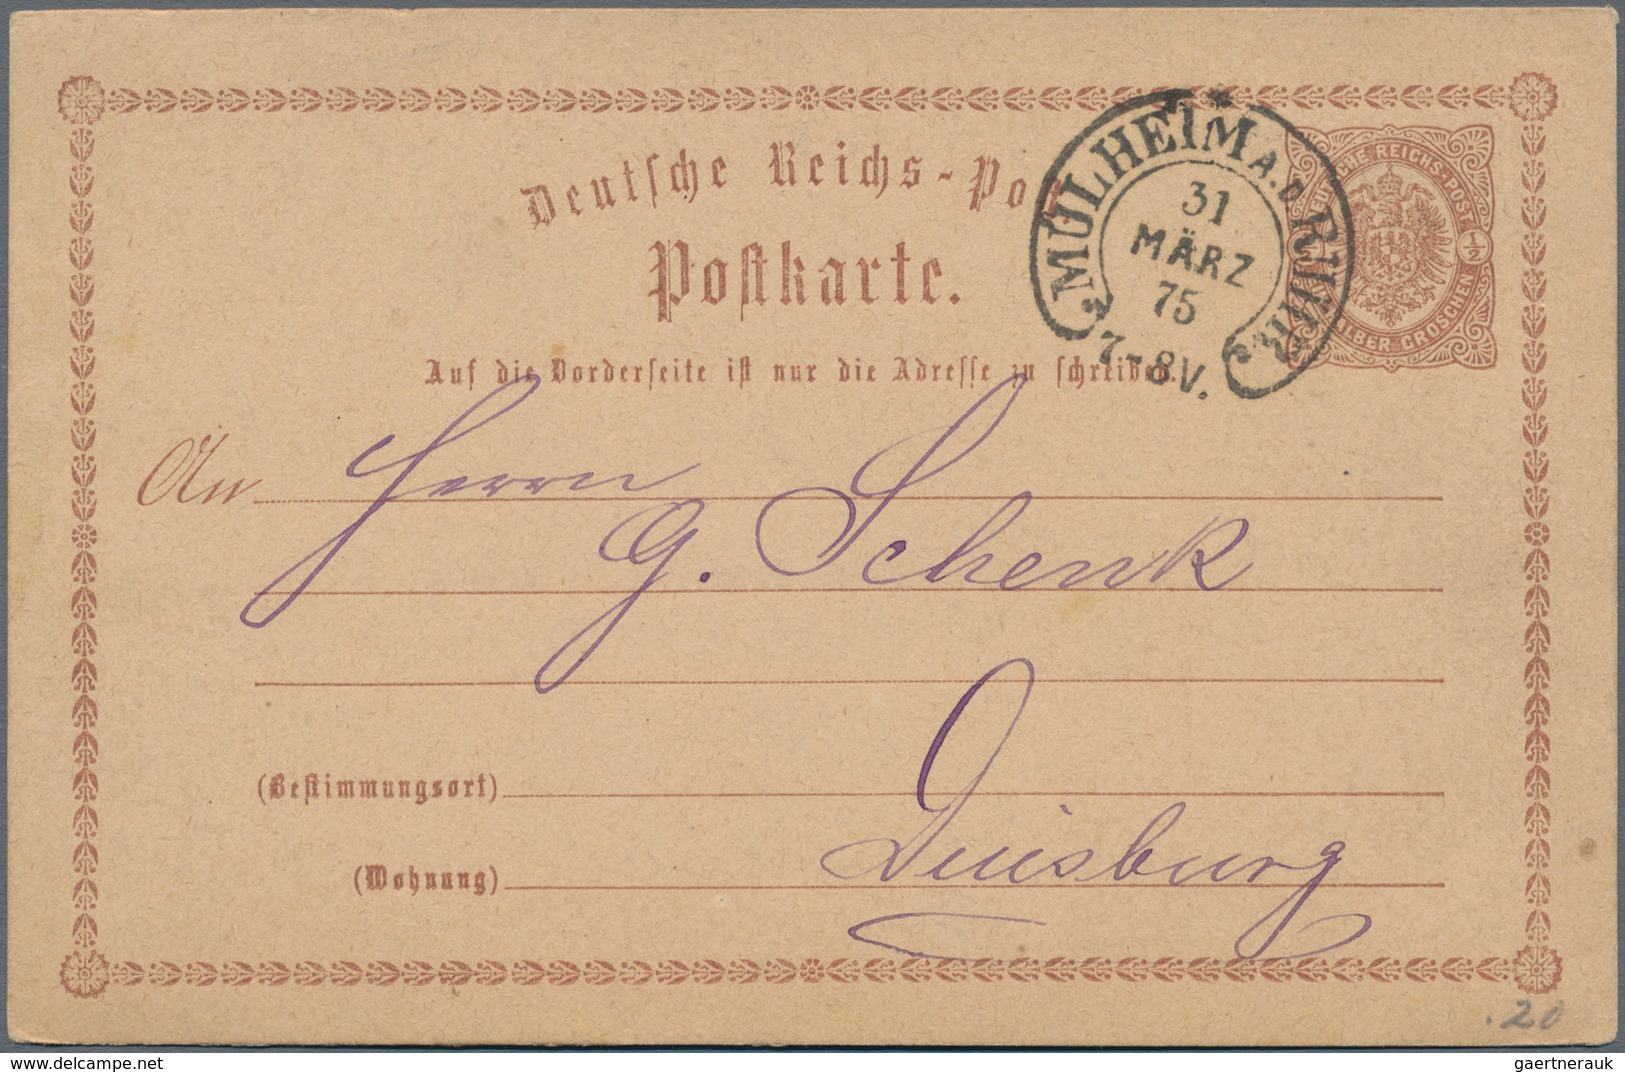 Deutsche Reichs-Post
Postkarte.
MÜLHEIM A. D RUHR
31
MÄRZ
75
7-8 V.
DEUTSCHE REICHS-POST
1/2
EIN HALBER GROSCHEN
Auf die Vorderseite ist nur die Adresse zu schreiben.
An Herrn
G. Schenk
(Bestimmungsort)
Duisburg
(Wohnung)
.20
www.delcampe.net
gaertnerauk